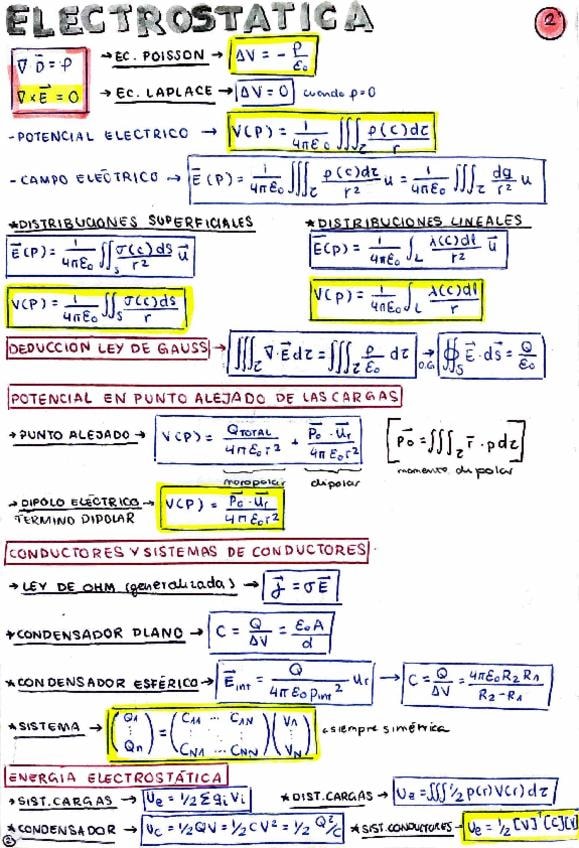 ELECTROSTATICA
2
∇ D⃗ = ρ → EC. POISSON → ΔV = - ρ/ε₀
∇ × E⃗ = 0 → EC. LAPLACE → ΔV = 0 cuando ρ=0
- POTENCIAL ELECTRICO → V(P) = 1/4πε₀ ∭_τ ρ(c)dτ/r
- CAMPO ELÉCTRICO → E⃗(P) = 1/4πε₀ ∭_τ ρ(c)dτ/r² u = 1/4πε₀ ∭_τ dq/r² u
*DISTRIBUCIONES SUPERFICIALES
E⃗(P) = 1/4πε₀ ∬_S σ(c)ds/r² u⃗
V(P) = 1/4πε₀ ∬_S σ(c)ds/r
*DISTRIBUCIONES LINEALES
E⃗(P) = 1/4πε₀ ∫_L λ(c)dl/r² u⃗
V(P) = 1/4πε₀ ∫_L λ(c)dl/r
DEDUCCION LEY DE GAUSS → ∭_τ ∇·E⃗ dτ = ∭_τ ρ/ε₀ dτ → O.G. ∯_S E⃗·ds⃗ = Q/ε₀
POTENCIAL EN PUNTO ALEJADO DE LAS CARGAS
→ PUNTO ALEJADO → V(P) = Q_TOTAL/4πε₀r² + P⃗₀·U⃗r/4πε₀r² [P⃗₀ = ∭_τ r⃗·ρdτ]
monopolar dipolar momento dipolar
→ DIPOLO ELÉCTRICO → V(P) = P⃗₀·U⃗r/4πε₀r²
TERMINO DIPOLAR
CONDUCTORES Y SISTEMAS DE CONDUCTORES
→ LEY DE OHM (generalizada) → j⃗ = σE⃗
*CONDENSADOR PLANO → C = Q/ΔV = ε₀A/d
*CONDENSADOR ESFÉRICO → E⃗int = Q/4πε₀ρint² Ur → C = Q/ΔV = 4πε₀R₂R₁/R₂-R₁
*SISTEMA → (Q₁ ⋮ Qn) = (C₁₁ ... C₁N ⋮ ⋮ CN₁ ... CNN) (V₁ ⋮ VN) siempre simétrica
ENERGIA ELECTROSTÁTICA
→ SIST. CARGAS → Ue = 1/2 Σ qi Vi *DIST. CARGAS → Ue = ∭ 1/2 ρ(r)V(r)dτ
*CONDENSADOR → Uc = 1/2 QV = 1/2 CV² = 1/2 Q²/C *SIST. CONDUCTORES → Ue = 1/2 [V]ᵗ[C][V]
2